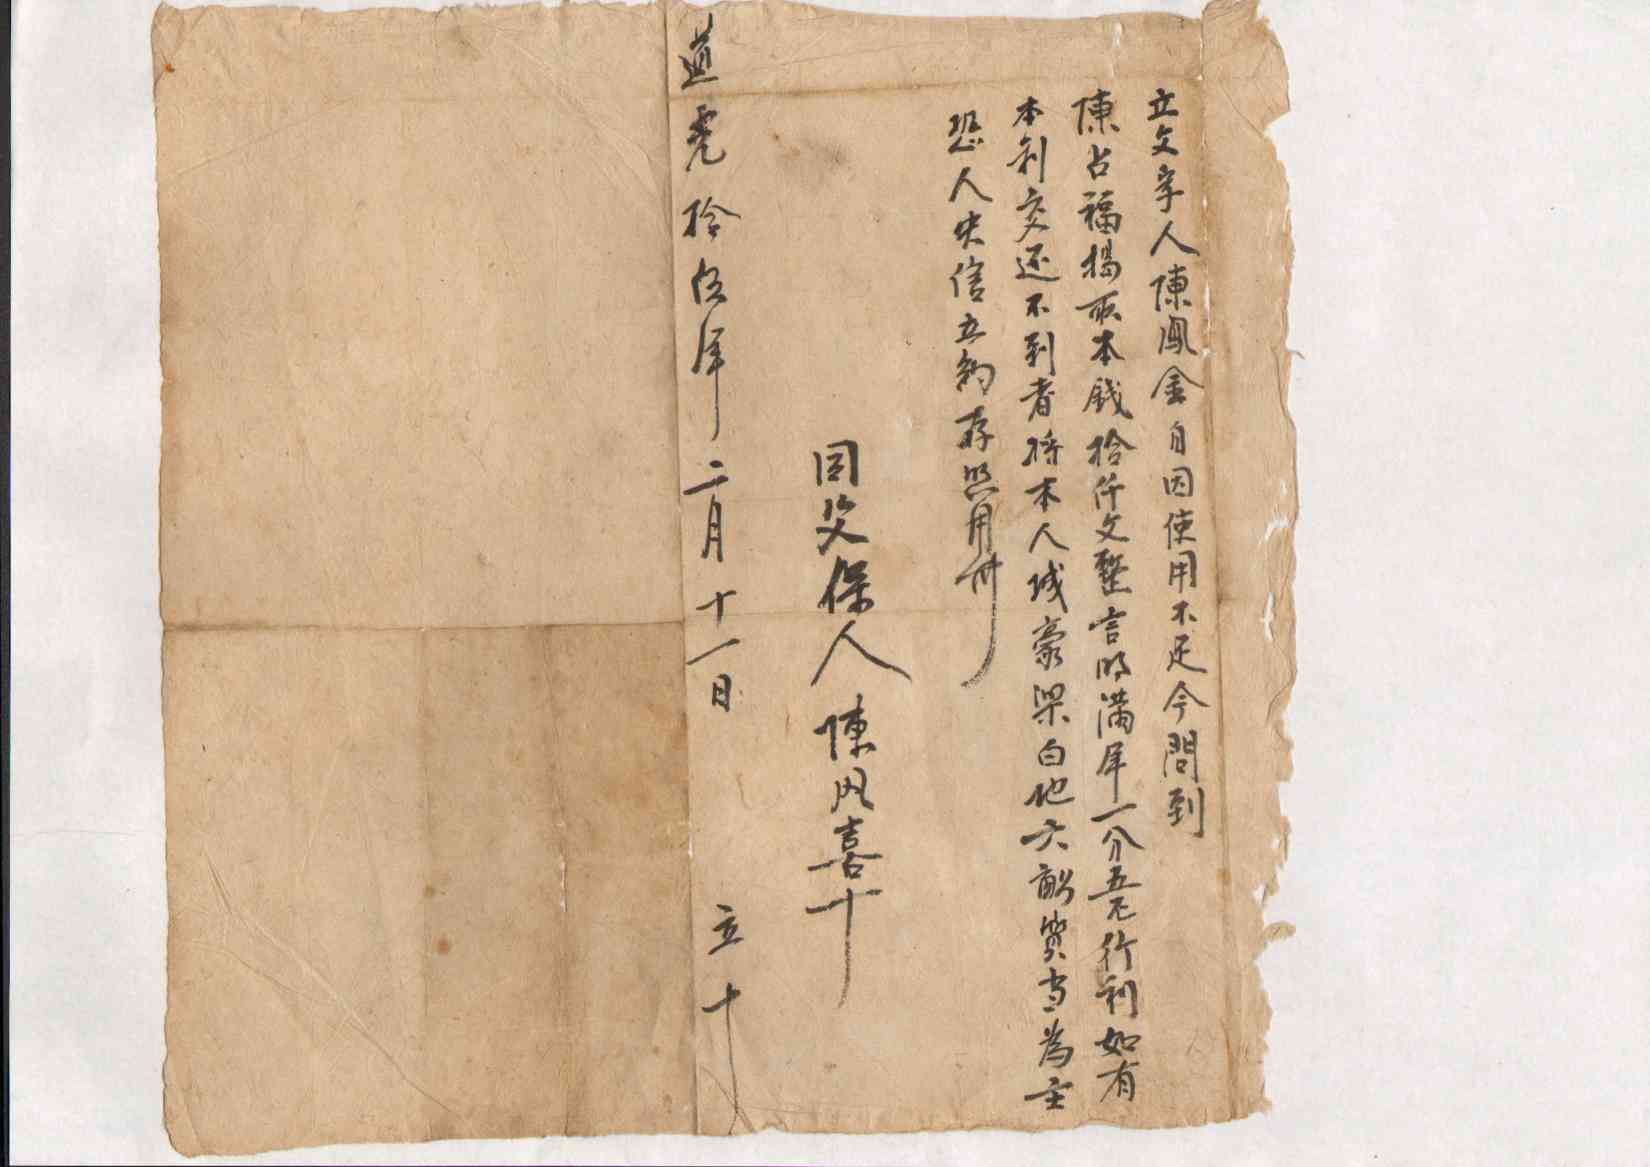 立文字人陳鳳金自因使用不足今問到
陳占福揭取本錢拾仟文整言明滿年一分五厘行利如有
本利交還不到者将本人城豪梁白地六畝質當為主
恐人失信立約存照用
同父保人陳凤喜十
道光拾伍年二月十一日 立十